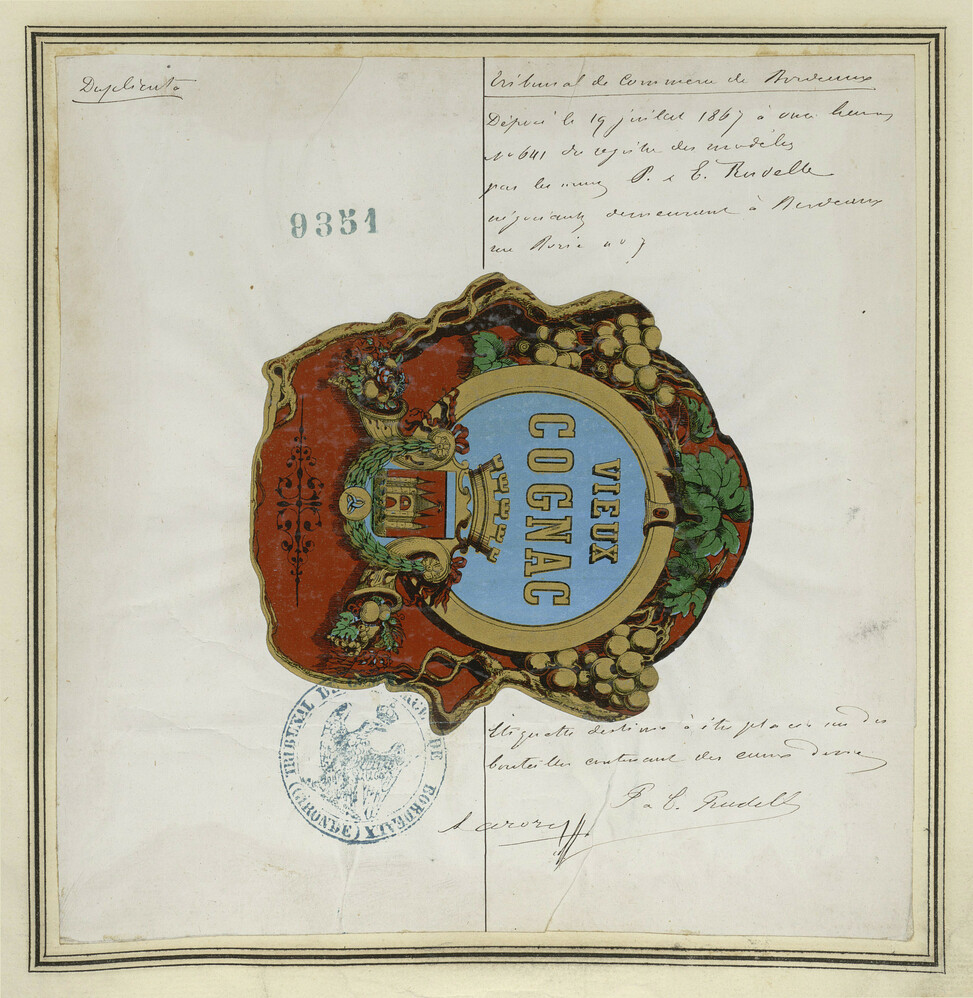 Duplicata
Tribunal de Commerce de Bordeaux
Déposé le 19 juillet 1867 à onze heures
No 641 du registre des modèles
par les mrs P. & E. Rudelle
négociants demeurant à Bordeaux
rue Borie no 7
9351
VIEUX
COGNAC
Etiquette destinée à être placée sur des
bouteilles contenant des eaux de vie
P & E. Rudelle
TRIBUNAL DE COMMERCE DE BORDEAUX
(GIRONDE)